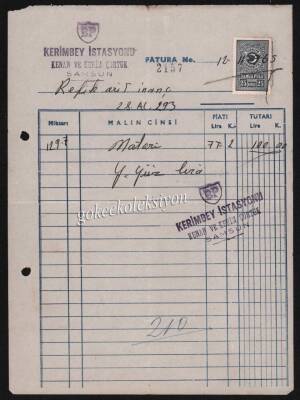 BP
KERİMBEY İSTASYONU
KENAN VE ESRLA ÇUBTUK
SAMSUN
FATURA No.
2157
Refik arif inanç
28.AL.293
Miktarı MALIN CİNSİ FİATI TUTARI
Lira K. Lira Kr.
129.7 77 2 100 00
Y. Yüz lira
gokcekoleksiyon
BP
KERİMBEY İSTASYONU
SAMSUN
210